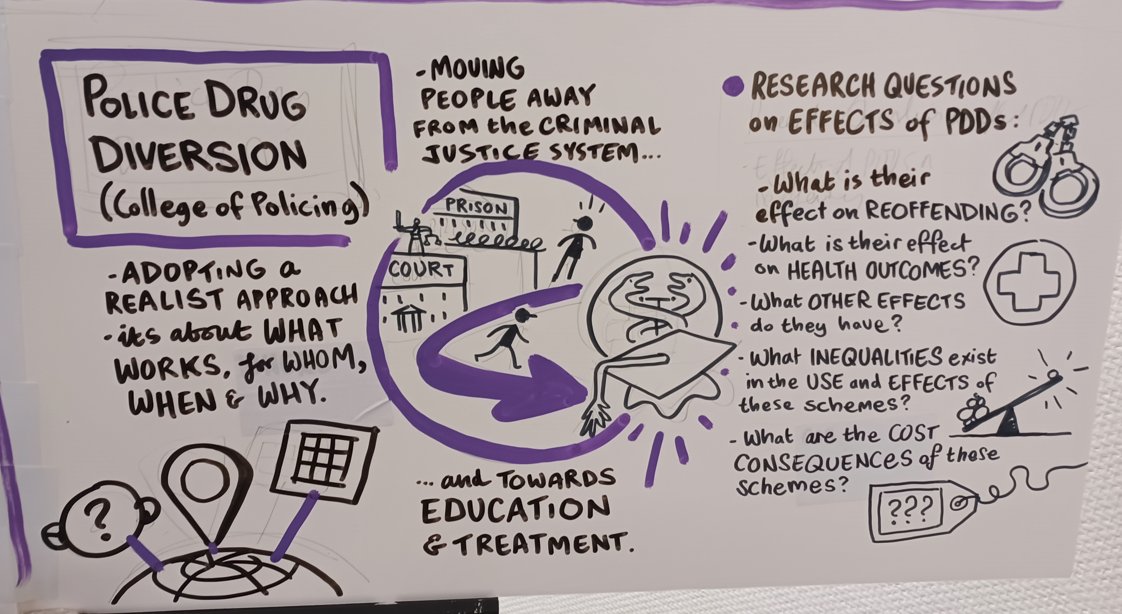 POLICE DRUG
DIVERSION
(College of Policing)
-ADOPTING a
REALIST APPROACH
-its about WHAT
WORKS, for WHOM,
WHEN & WHY.
?
-MOVING
PEOPLE AWAY
FROM the CRIMINAL
JUSTICE SYSTEM...
PRISON
COURT
...and TOWARDS
EDUCATION
& TREATMENT.
RESEARCH QUESTIONS
on EFFECTS of PDDs:
-What is their
effect on REOFFENDING?
-What is their effect
on HEALTH OUTCOMES?
-What OTHER EFFECTS
do they have?
-What INEQUALITIES exist
in the USE and EFFECTS of
these schemes?
-What are the COST
CONSEQUENCES of these
schemes?
???